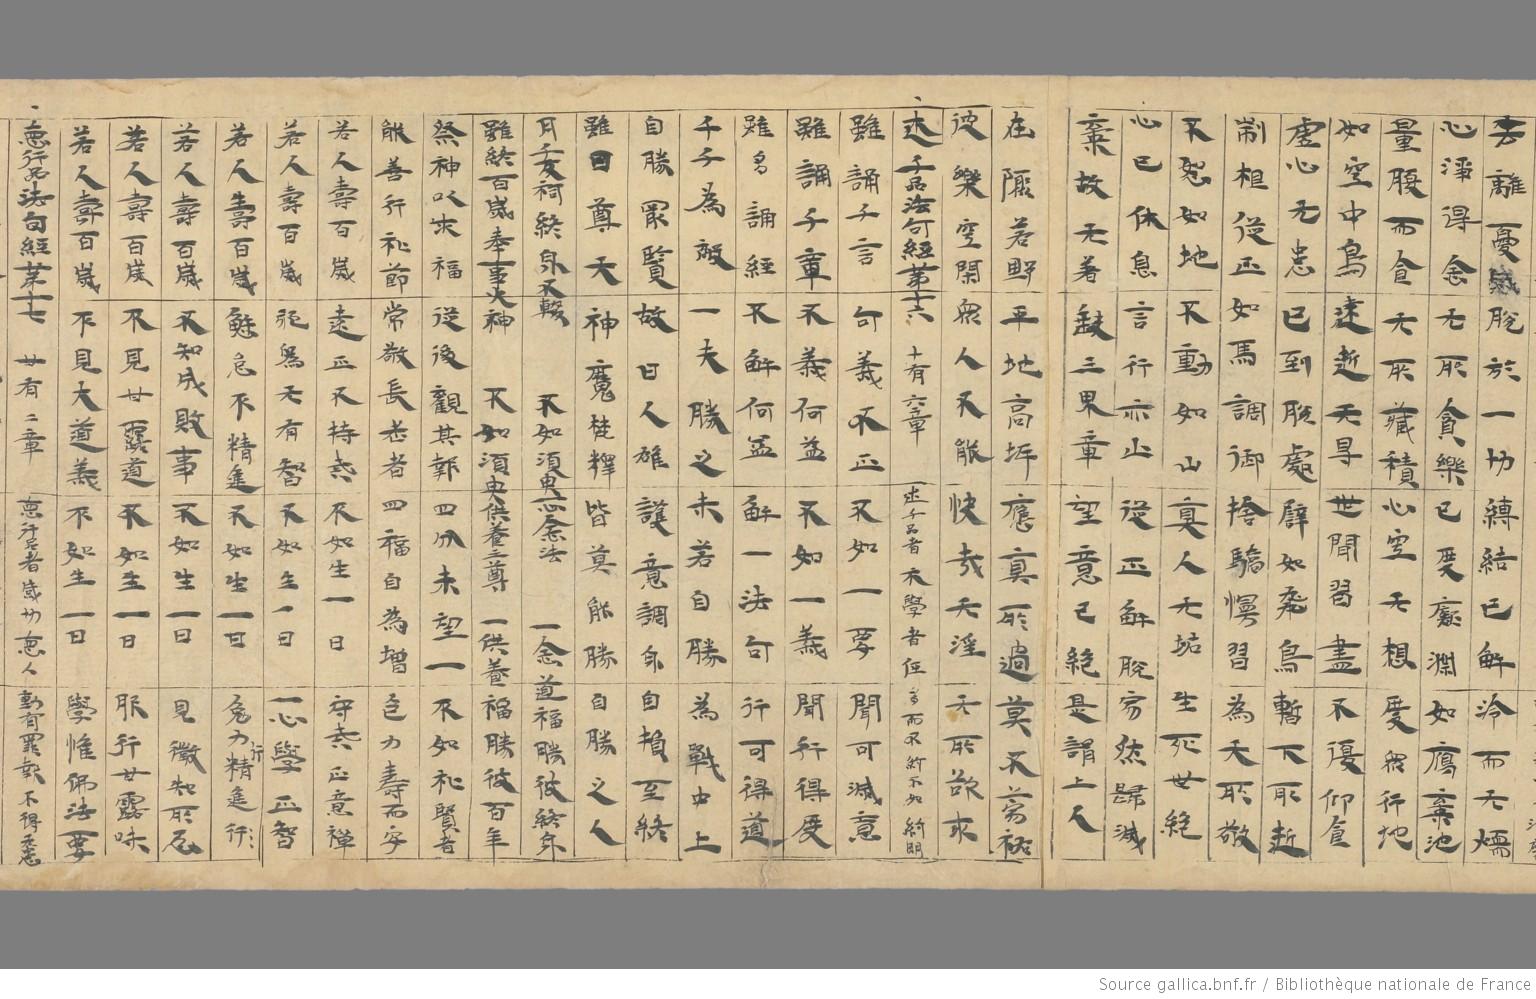 去離憂慼 脫於一切 縛結已解 冷而无煗
心淨得念 无所貪樂 已度癡淵 如鴈棄池
量腹而食 无所藏積 心空无想 度眾行地
如空中鳥 遠逝无㝵 世間習盡 不復仰食
虛心无患 已到脫處 譬如飛鳥 暫下而逝
制根從正 如馬調御 捨驕慢習 為天所敬
不怒如地 不動如山 真人无垢 生死世絕
心已休息 言行亦止 從正解脫 寂然歸滅
棄故无著 缺三界章 望意已絕 是謂上人
在聚若野 平地高埠 應真所過 莫不蒙祐
彼樂空閑 眾人不能 快哉无淫 无所欲求
述千品法句經第十六 十有六章 述千品者 示學者經 多而不約不如約明
雖誦千言 句義不正 不如一要 聞可滅意
雖誦千章 不義何益 不如一義 聞行得度
雖多誦經 不解何益 解一法句 行可得道
千千為敵 一夫勝之 未若自勝 為戰中上
自勝冣賢 故曰人雄 護意調身 自損至終
雖曰尊天 神魔梵釋 皆莫能勝 自勝之人
月千反祠 終身不輟 不如須臾 一心念法 一念道福 勝彼終身
雖終百歲 奉事火神 不如須臾 供養三尊 一供養福 勝彼百年
祭神以求福 從後觀其報 四分未望一 不如礼賢者
能善行礼節 常敬長老者 四福自為增 色力壽而安
若人壽百歲 遠正不持戒 不如生一日 守戒正意禪
若人壽百歲 邪偽无有智 不如生一日 一心學正智
若人壽百歲 懈怠不精進 不如生一日 勉力行精進
若人壽百歲 不知成敗事 不如生一日 見微知所忌
若人壽百歲 不見甘露道 不如生一日 服行甘露味
若人壽百歲 不見大道義 不如生一日 學惟佛法要
惡行品法句經第十七 廿有二章 惡行品者 感切惡人 動有罪報 不得惡
Source gallica.bnf.fr / Bibliothèque nationale de France